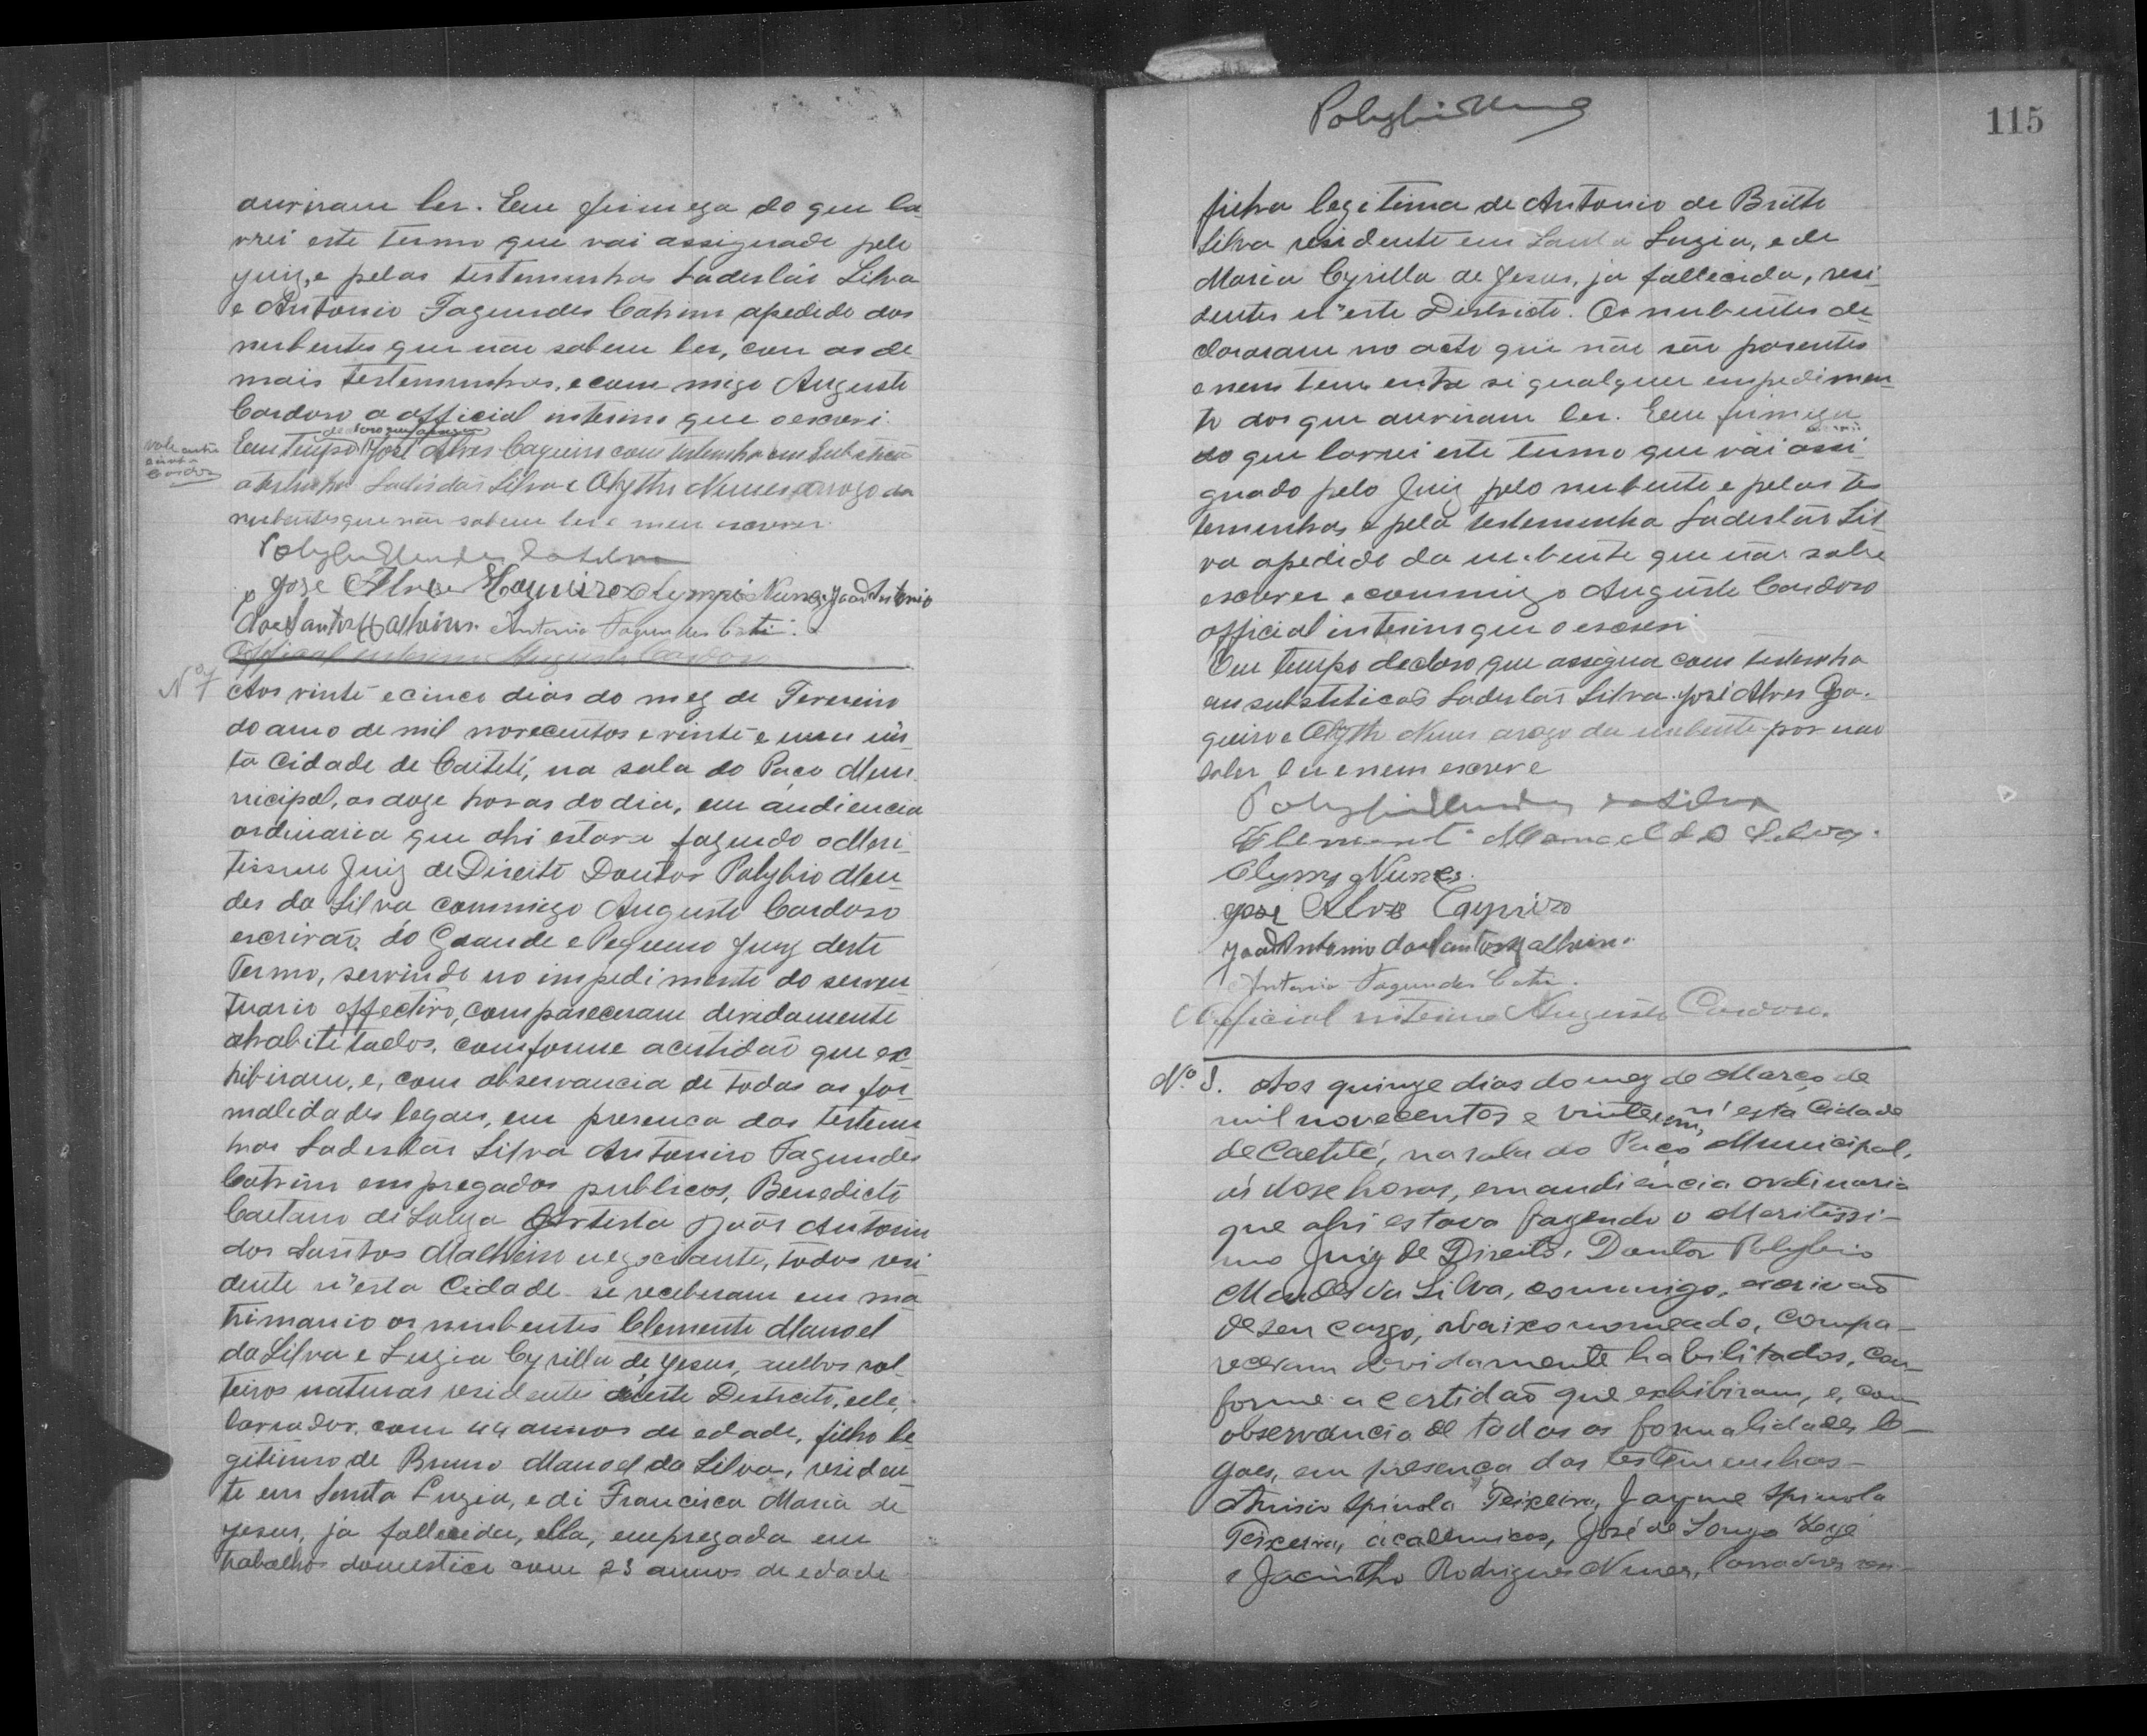 ouviram ler. Em firmeza do que la
vrei este termo que vai assignado pelo
juiz, e pelas testemunhas Ladisláo Silva
e Antonio Fagundes Cotrim apedido dos
nubentes que não sabem ler, com as de
mais testemunhas, e com migo Augusto
Cardoso o official interino que o escrevi.
declaro que assigna
Em tempo José Alves Cayueiro com testemunha em substituicão
Ladislás Silva e Olyntho Nunes arogo da
nubentes que não sabem ler e nem escrever
vale entre
Cardoso
Polybio Mendes da Silva
José Alves Olympio Nunes João Antonio
dos Santos Malheiros. Antonio Fagundes Cotrim.
Official interino Augusto Cardoso
Nº 7 Aos vinte e cinco dias do mez de Fevereiro
do anno de mil novecentos e vinte e um nes
ta Cidade de Caiteté, na sala do Paço Mu
nicipal, as doze horas do dia, em audiencia
ordinaria que ahi estava fazendo o Meri
tissimo Juiz de Direito Doutor Polybio Men
des da Silva commigo Augusto Cardoso
escrivão do Grande e Pequeno Jury deste
Termo, servindo no impedimento do serven
tuario effectivo, compareceram devidamente
conforme acertidão que ex
hibiram, e, com observancia de todas as for
malidades legaes, em presença das testemu
nhas Ladislás Silva Antonio Fagundes
Cotrim empregados publicos, Benedicto
Caetano de Souza Artista João Antonio
dos Santos Malheiro negociante, todos resi
dente n'esta Cidade se receberam em ma
trimonio os nubentes Clemente Manoel
da Silva e Luzia Cyrilla de Jesus, ambos sol
teiros naturas residentes neste Destricto, elle,
lavrador, com 44 annos de edade, filho le
gitimo de Bruno Manoel da Silva, residen
te em Santa Luzia, e di Francisca Maria de
Jesus, ja fallecida, ella, empregada em
trabalhos domestico com 23 annos de edade
Polybio Mendes
115
filha legitima de Antonio de Britto
Silva residente em Santa Luzia, e de
Maria Cyrilla de Jesus, ja fallecida, resi
dentes n'este Destricto. Os nubentes de
clararam no acto que não são parentes
e nem tem entre si qualquer impedimen
to dos que ouviram ler. Em firmeza
do que lavrei este termo que vai assi
gnado pelo Juiz pelo nubente e pelas tes
temunhas e pela testemunha Ladislás Sil
va apedido da nubente que não sabe
escrever e commigo Augusto Cardoso
official interino que o escrevi
Em tempo declaro que assigna com testemunha
em substituicão Ladislás Silva José Alves Ca
yueiro e Olyntho Nunes arogo da nubente por não
saber ler e nem escrever
Polybio Mendes da Silva
Clemente Manoel da Silva.
Olympio Nunes.
José Alves Cayueiro
João Antonio dos Santos Malheiro.
Antonio Fagundes Cotrim.
O official interino Augusto Cardoso.
Nº 8. Aos quinze dias do mez de Março de
mil novecentos e vinte e um, n'esta Cidade
de Caetité, na sala do Paço Municipal,
ás dose horas, em audiencia ordinaria
que ahi estava fazendo o Meritissi-
mo Juiz de Direito, Doutor Polybio
Mendes da Silva, commigo, escrivão
de seu cargo, abaixo nomeado, compa-
receram devidamente habilitados, con-
forme a certidão que exhibiram, e, com
observancia de todas as formalidades le-
gaes, em presença das testemunhas-
Anisio Spinola Teixeira, Jayme Spinola
Teixeira, academicos, José de Souza
e Jacintho Rodrigues Nunes, lavradores resi-